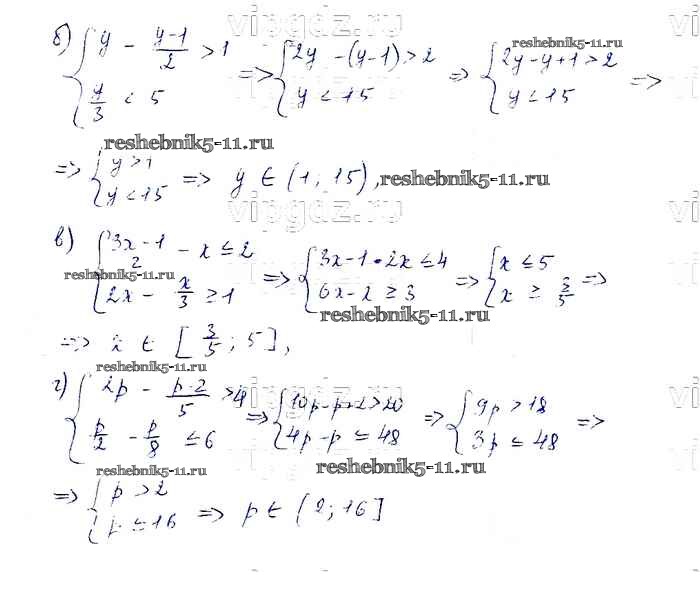 vipgdz.ru
б) { y - (y-1)/2 > 1 ; y/3 < 5 => { 2y - (y-1) > 2 ; y < 15 => { 2y - y + 1 > 2 ; y < 15 =>
reshebnik5-11.ru
reshebnik5-11.ru
=> { y > 1 ; y < 15 => y ∈ (1; 15), reshebnik5-11.ru
vipgdz.ru
в) { (3x-1)/2 - x ≤ 2 ; 2x - x/3 ≥ 1 => { 3x-1-2x ≤ 4 ; 6x-x ≥ 3 => { x ≤ 5 ; x ≥ 3/5 =>
reshebnik5-11.ru
reshebnik5-11.ru
=> x ∈ [3/5; 5],
reshebnik5-11.ru
vipgdz.ru
г) { 2p - (p-2)/5 > 4 ; p/2 - p/8 ≤ 6 => { 10p-p+2>20 ; 4p-p ≤ 48 => { 9p > 18 ; 3p ≤ 48 =>
reshebnik5-11.ru
reshebnik5-11.ru
=> { p > 2 ; p ≤ 16 => p ∈ (2; 16]
reshebnik5-11.ru
vipgdz.ru